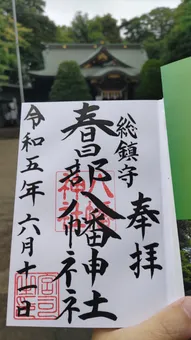 奉拝
総鎮守
春日部八幡神社
令和五年六月十一日